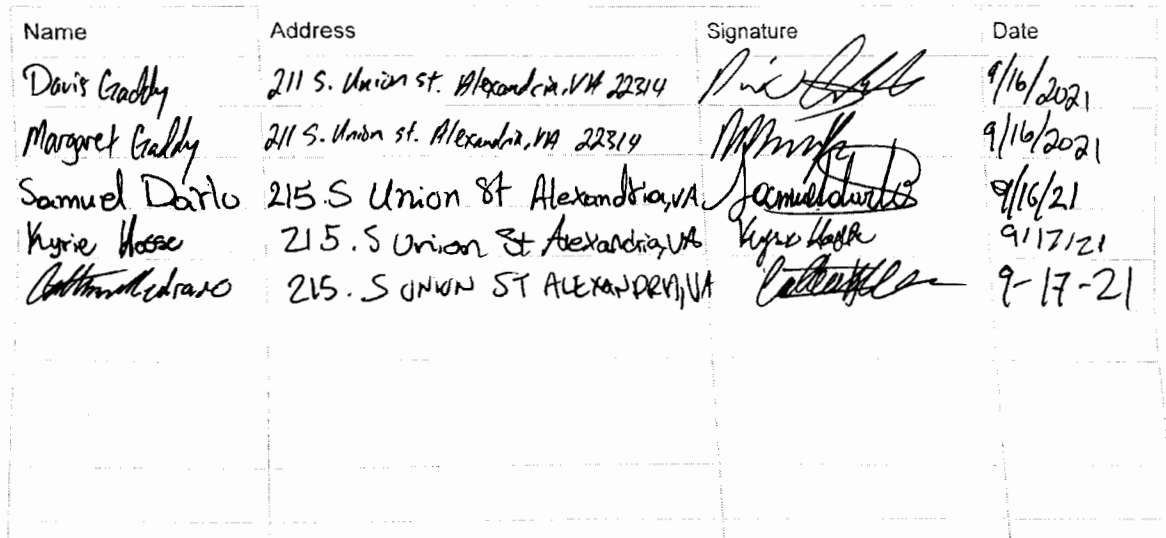 Name Address Signature Date
Davis Gaddy 211 S. Union st. Alexandria, VA 22314 9/16/2021
Margaret Gaddy 211 S. Union st. Alexandria, VA 22314 9/16/2021
Samuel Darlo 215.S Union St Alexandria, VA Samueldarlo 9/16/21
Kyrie Hosse 215.S Union St Alexandria, VA Kyrie Hosse 9/17/21
Medrano 215.S UNION ST ALEXANDRIA, VA 9-17-21